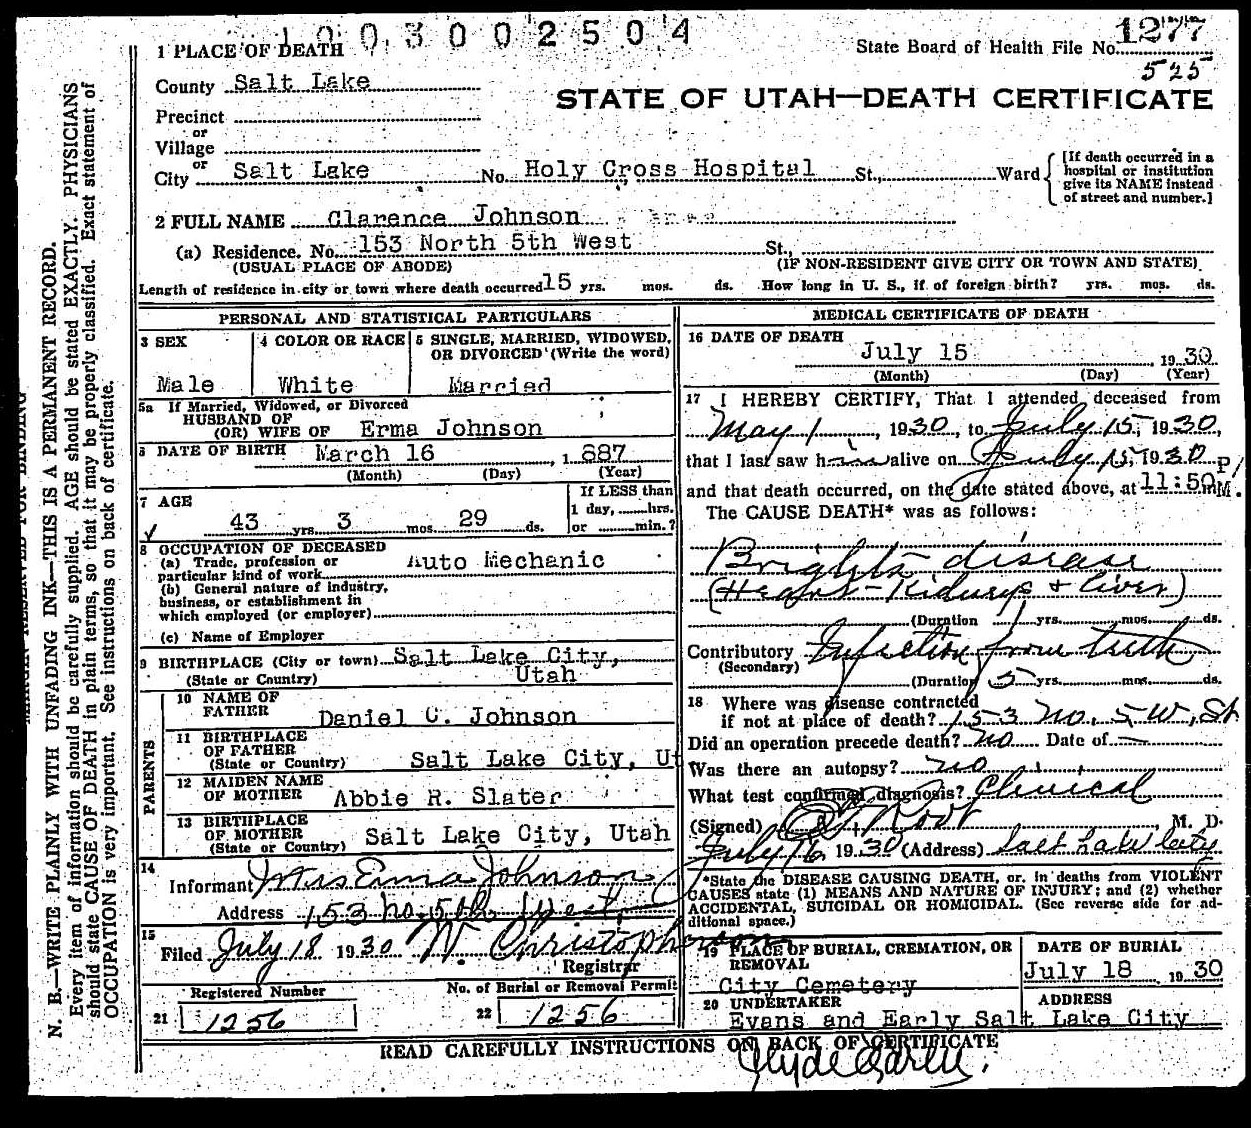 1003002504
1 PLACE OF DEATH
State Board of Health File No. 1277
525
County Salt Lake
STATE OF UTAH—DEATH CERTIFICATE
Precinct
or
Village
or
City Salt Lake No. Holy Cross Hospital St., Ward
[If death occurred in a
hospital or institution
give its NAME instead
of street and number.]
2 FULL NAME Clarence Johnson
(a) Residence. No. 153 North 5th West St.,
(USUAL PLACE OF ABODE) (IF NON-RESIDENT GIVE CITY OR TOWN AND STATE)
Length of residence in city or town where death occurred 15 yrs. mos. ds. How long in U. S., if of foreign birth? yrs. mos. ds.
PERSONAL AND STATISTICAL PARTICULARS
3 SEX 4 COLOR OR RACE 5 SINGLE, MARRIED, WIDOWED,
OR DIVORCED (Write the word)
Male White Married
5a If Married, Widowed, or Divorced
HUSBAND OF
(OR) WIFE OF Erma Johnson
6 DATE OF BIRTH March 16, 1887
(Month) (Day) (Year)
7 AGE If LESS than
1 day, hrs.
43 yrs. 3 mos. 29 ds. or min.?
8 OCCUPATION OF DECEASED
(a) Trade, profession or Auto Mechanic
particular kind of work
(b) General nature of industry,
business, or establishment in
which employed (or employer)
(c) Name of Employer
9 BIRTHPLACE (City or town) Salt Lake City,
(State or Country) Utah
PARENTS
10 NAME OF
FATHER Daniel C. Johnson
11 BIRTHPLACE
OF FATHER
(State or Country) Salt Lake City, Ut
12 MAIDEN NAME
OF MOTHER Abbie R. Slater
13 BIRTHPLACE
OF MOTHER
(State or Country) Salt Lake City, Utah
14
Informant Mrs Erma Johnson
Address 153 no. 5th West.
15
Filed July 18 1930 W. Christopherson
Registrar
Registered Number No. of Burial or Removal Permit
21 1256 22 1256
MEDICAL CERTIFICATE OF DEATH
16 DATE OF DEATH
July 15 1930
(Month) (Day) (Year)
17 I HEREBY CERTIFY, That I attended deceased from
May 1, 1930, to July 15, 1930,
that I last saw him alive on July 15, 1930
and that death occurred, on the date stated above, at 11:50 P M.
The CAUSE DEATH* was as follows:
Brights disease
(Heart - Kidneys & liver)
(Duration 1 yrs. mos. ds.
Contributory Infection from teeth
(Secondary)
(Duration 5 yrs. mos. ds.
18 Where was disease contracted
if not at place of death? 153 No. 5 W, St
Did an operation precede death? no Date of —
Was there an autopsy? no
What test confirmed diagnosis? Clinical
(Signed) Root, M. D.
July 16 1930 (Address) Salt Lake City
*State the DISEASE CAUSING DEATH, or, in deaths from VIOLENT
CAUSES state (1) MEANS AND NATURE OF INJURY; and (2) whether
ACCIDENTAL, SUICIDAL OR HOMICIDAL. (See reverse side for ad-
ditional space.)
19 PLACE OF BURIAL, CREMATION, OR
REMOVAL
City Cemetery
DATE OF BURIAL
July 18, 1930
20 UNDERTAKER ADDRESS
Evans and Early Salt Lake City
READ CAREFULLY INSTRUCTIONS ON BACK OF CERTIFICATE
Clyde Early.
MARGIN RESERVED FOR BINDING
N. B.—WRITE PLAINLY WITH UNFADING INK—THIS IS A PERMANENT RECORD.
Every item of information should be carefully supplied. AGE should be stated EXACTLY. PHYSICIANS
should state CAUSE OF DEATH in plain terms, so that it may be properly classified. Exact statement of
OCCUPATION is very important. See instructions on back of certificate.